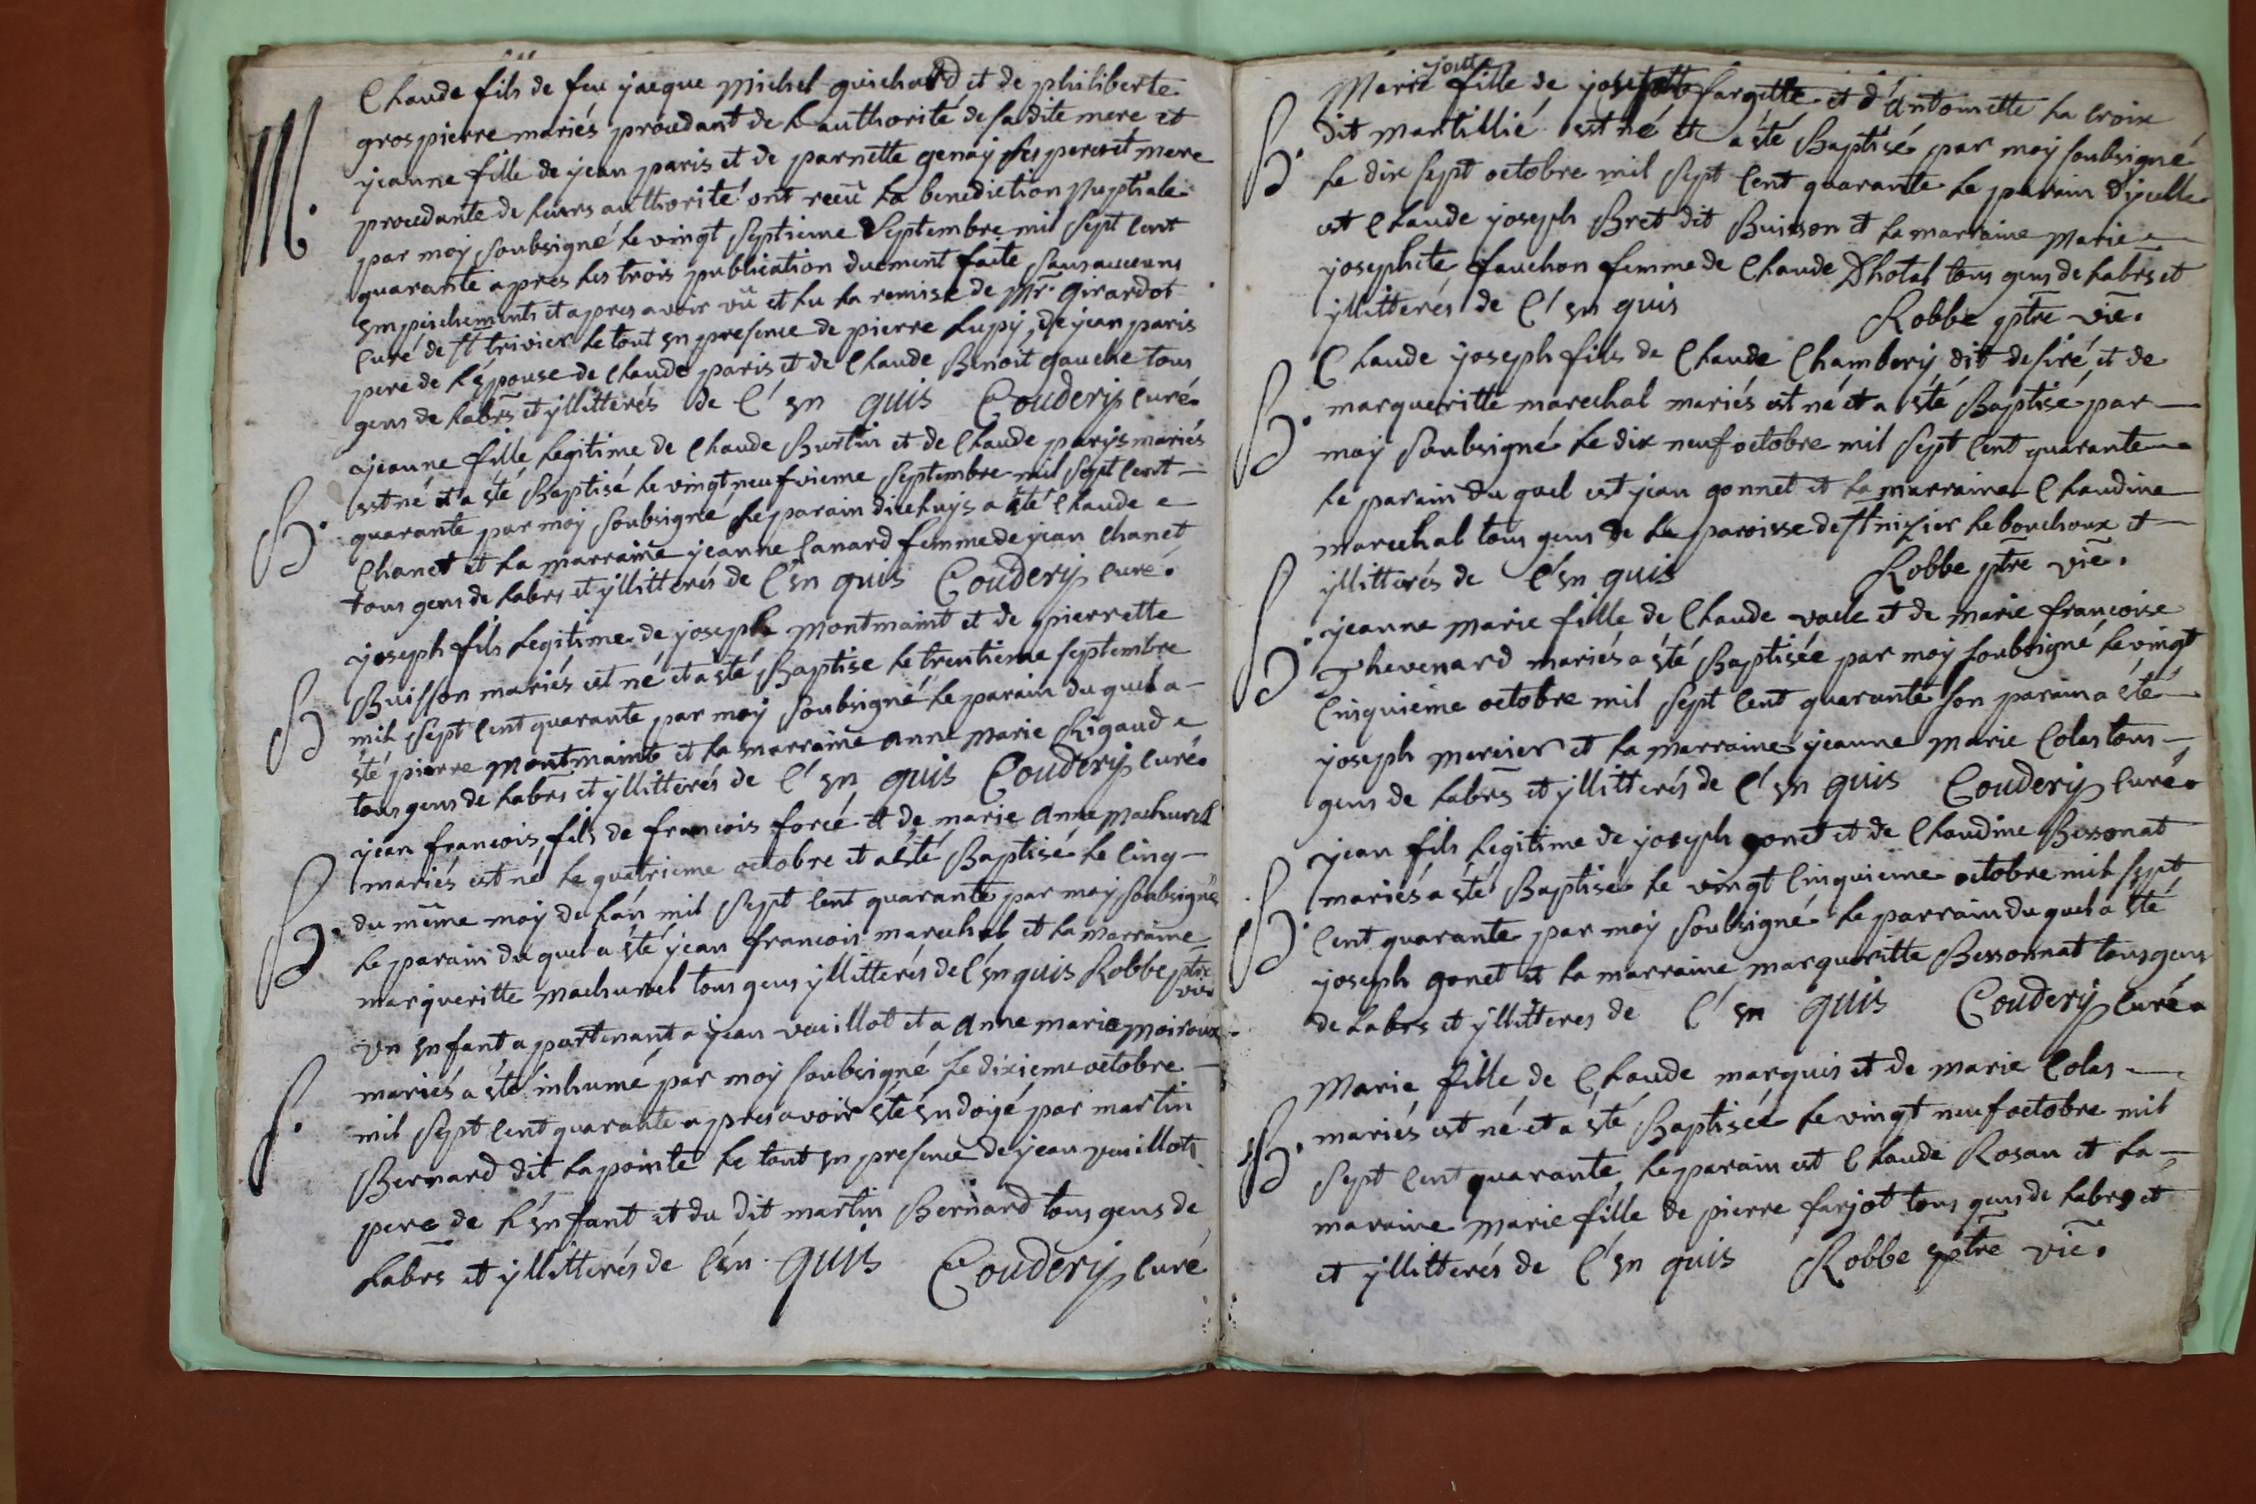 M.
Claude fils de feu jacque Michel guichard et de philiberte
grospierre mariés procedant de l authorité de sa dite mere et
jeanne fille de jean paris et de parnette genay ses pere et mere
procedante de leurs authorité ont reçu la benediction Nuptiale
par moy soubsigné le vingt septieme Septembre mil sept cent
quarante apres les trois publication duement faite sans aucuns
Empechements et apres avoir vû et lu la remise de Mr. Girardot
curé de st trivier le tout en presence de pierre Lupy, de jean paris
pere de l'epouse de Claude paris et de Claude Benoit gauche tous
gens de labrs et yllitterés de c' en quis Coudery curé.
B.
jeanne fille legitime de Claude Burtin et de Claude parys mariés
est né et a eté Baptisé le vingt neufvieme Septembre mil sept cent
quarante par moy soubsigné le parain dicelluys a été Claude
Chanet et la marraine jeanne Canard femme de jean Chanet
tous gens de labrs et yllitterés de c'en quis Coudery curé.
B
joseph fils legitime de joseph Montmaint et de pierrette
Buisson mariés est né et a eté Baptise le trentieme septembre
mil sept cent quarante par moy soubsigné le parain du quel a
eté pierre Montmaint et la marraine anne Marie Rigaud
tous gens de labrs et yllitterés de c' en quis Coudery curé.
B.
jean francois fils de francois forcé et de marie anne Machurel
mariés est né le quatrieme octobre et a eté Baptisé le cinq
du même moy de l'an mil sept cent quarante par moy soubsigné
le parain du quel a eté jean francois marechal et la marraine
margueritte Machurel tous gens yllitterés de c'en quis Robbe ptre
vire
S.
Un Enfant apartenant a jean vuillot et a anne marie Moiroux
mariés a eté inhumé par moy soubsigné le dixieme octobre
mil sept cent quarante apres avoir eté Endoyé par martin
Bernard dit lapointe le tout en presence de jean vuillot
pere de l'enfant et du dit martin Bernard tous gens de
labrs et yllitterés de c'en quis Coudery curé
B.
joutte
Marie fille de joseph fargette et d'Antoinette la croix
dit Mantillié est né et a eté Baptisé par moy soubsigné
le dix sept octobre mil sept cent quarante le parain dycelle
est Claude joseph Bret dit Buisson et la marraine Marie
josephte fauchon femme de Claude Dhotal tous gens de labrs et
yllitterés de c' en quis Robbe ptre vire.
B.
Claude joseph fils de Claude Chambery dit desiré et de
margueritte marechal mariés est né et a eté Baptisé par
moy soubsigné le dix neuf octobre mil sept cent quarante
le parain du quel est jean gonnet et la marraine Claudine
marechal tous gens de la paroisse de st nizier le bouchoux et
yllitterés de c'en quis Robbe ptre vire.
B.
jeanne Marie fille de Claude vaele et de marie francoise
Thevenard mariés a eté Baptisée par moy soubsigné le vingt
cinquieme octobre mil sept cent quarante son parain a eté
joseph mercier et la marraine jeanne marie Colas tous
gens de labrs et yllitterés de c' en quis Coudery curé.
B.
jean fils legitime de joseph gonet et de Claudine Bessonat
mariés a eté Baptisé le vingt cinquieme octobre mil sept
cent quarante par moy soubsigné le parrain du quel a eté
joseph gonet et la marraine margueritte Bessonnat tous gens
de labrs et yllitteres de c' en quis Coudery curé.
B.
Marie fille de Claude marquis et de marie Colas
mariés est né et a eté Baptisée le vingt neuf octobre mil
sept cent quarante, le parain est Claude Rosan et la
maraine marie fille de pierre farjot tous gens de labrs et
et yllitterés de c'en quis Robbe ptre vire.